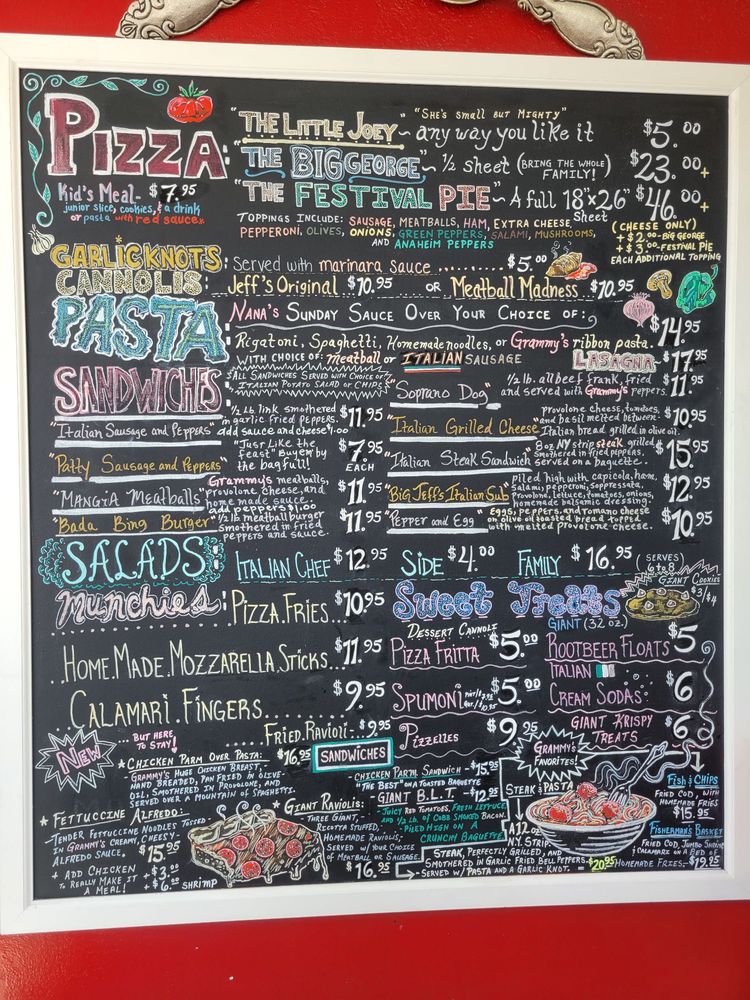 PIZZA:
"THE LITTLE JOEY"~ "SHE'S SMALL BUT MIGHTY" any way you like it $5.00
"THE BIG GEORGE"~ 1/2 sheet (BRING THE WHOLE FAMILY!) $23.00+
"THE FESTIVAL PIE"~ A full 18"x26" Sheet $46.00+
Kid's Meal- $7.95
junior slice, cookies, & a drink
or pasta with red sauce*
TOPPINGS INCLUDE: SAUSAGE, MEATBALLS, HAM, EXTRA CHEESE,
PEPPERONI, OLIVES, ONIONS, GREEN PEPPERS, SALAMI, MUSHROOMS,
AND ANAHEIM PEPPERS
(CHEESE ONLY)
+$2.00-BIG GEORGE
+$3.00-FESTIVAL PIE
EACH ADDITIONAL TOPPING
GARLIC KNOTS: Served with marinara sauce ......... $5.00
CANNOLIS: Jeff's Original $10.95 OR Meatball Madness $10.95
PASTA: NANA'S SUNDAY SAUCE OVER YOUR CHOICE OF:
Rigatoni, Spaghetti, Homemade noodles, or Grammy's ribbon pasta. $14.95
WITH CHOICE OF: meatball or ITALIAN SAUSAGE
LASAGNA $17.95
SANDWICHES: ALL SANDWICHES SERVED WITH CHOICE OF
ITALIAN POTATO SALAD OR CHIPS
"Italian Sausage and Peppers" 1/2 lb. link smothered
in garlic fried peppers.
add sauce and cheese $1.00 $11.95
"Patty Sausage and Peppers" "Just Like the
feast" Buy em by
the bag full! $7.95 EACH
"MANGIA Meatballs" Grammy's meatballs,
provolone cheese, and
home made sauce.
add peppers $1.00 $11.95
"Bada Bing Burger" 1/2 lb meatball burger
smothered in fried
peppers and sauce. $11.95
"Soprano Dog" 1/2 lb. all beef frank, fried
and served with Grammy's peppers. $11.95
"Italian Grilled Cheese" provolone cheese, tomatoes,
and basil melted between
Italian bread, grilled in olive oil. $10.95
"Italian Steak Sandwich" 8 oz NY strip steak grilled
smothered in fried peppers,
served on a baguette. $15.95
"Big Jeff's Italian Sub" piled high with capicola, ham,
salami, pepperoni, soppressata,
provolone, lettuce, tomatoes, onions,
homemade balsamic dressing. $12.95
"Pepper and Egg" Eggs, peppers, and romano cheese
on olive oil toasted bread topped
with melted provolone cheese. $10.95
SALADS: ITALIAN CHEF $12.95 SIDE $4.00 FAMILY $16.95 (SERVES 6 to 8)
Munchies: PIZZA FRIES $10.95
HOME MADE MOZZARELLA STICKS... $11.95
CALAMARI FINGERS...... $9.95
FRIED RAVIOLI... $9.95
Sweet Treats
GIANT COOKIES
$3/$4
DESSERT CANNOLI
PIZZA FRITTA $5.00
SPUMONI $5.00
PIZZELLES $9.95
GIANT (32 OZ.)
ROOTBEER FLOATS $5
ITALIAN
CREAM SODAS: $6
GIANT KRISPY
TREATS $6
NEW
...BUT HERE
TO STAY!
*CHICKEN PARM OVER PASTA: $16.95
GRAMMY'S HUGE CHICKEN BREAST,
HAND BREADED, PAN FRIED IN OLIVE
OIL, SMOTHERED IN PROVOLONE, AND
SERVED OVER A MOUNTAIN OF SPAGHETTI.
*FETTUCCINE ALFREDO:
TENDER FETTUCCINE NOODLES TOSSED
IN GRAMMY'S CREAMY, CHEESY
ALFREDO SAUCE. $15.95
+ ADD CHICKEN +$3.00
TO REALLY MAKE IT
A MEAL! +$6.00 SHRIMP
*GIANT RAVIOLIS:
THREE GIANT,
RICOTTA STUFFED,
HOMEMADE RAVIOLIS,
SERVED W/ YOUR CHOICE
OF MEATBALL OR SAUSAGE.
$16.95
SANDWICHES
CHICKEN PARM SANDWICH - $15.95
"THE BEST" ON A TOASTED BAGUETTE
GIANT B.L.T. - $12.95
JUICY RED TOMATOES, FRESH LETTUCE,
AND 1/2 LB. OF COBB SMOKED BACON.
PILED HIGH ON A
CRUNCHY BAGUETTE
GRAMMY'S
FAVORITES!
STEAK & PASTA
A 12 OZ
N.Y. STRIP
STEAK, PERFECTLY GRILLED, AND
SMOTHERED IN GARLIC FRIED BELL PEPPERS. $20.95
SERVED W/ PASTA AND A GARLIC KNOT.
FISH & CHIPS
FRIED COD, WITH
HOMEMADE FRIES
$15.95
FISHERMANS BASKET
FRIED COD, JUMBO SHRIMP
& CALAMARI ON A BED OF
HOMEMADE FRIES.- $19.95